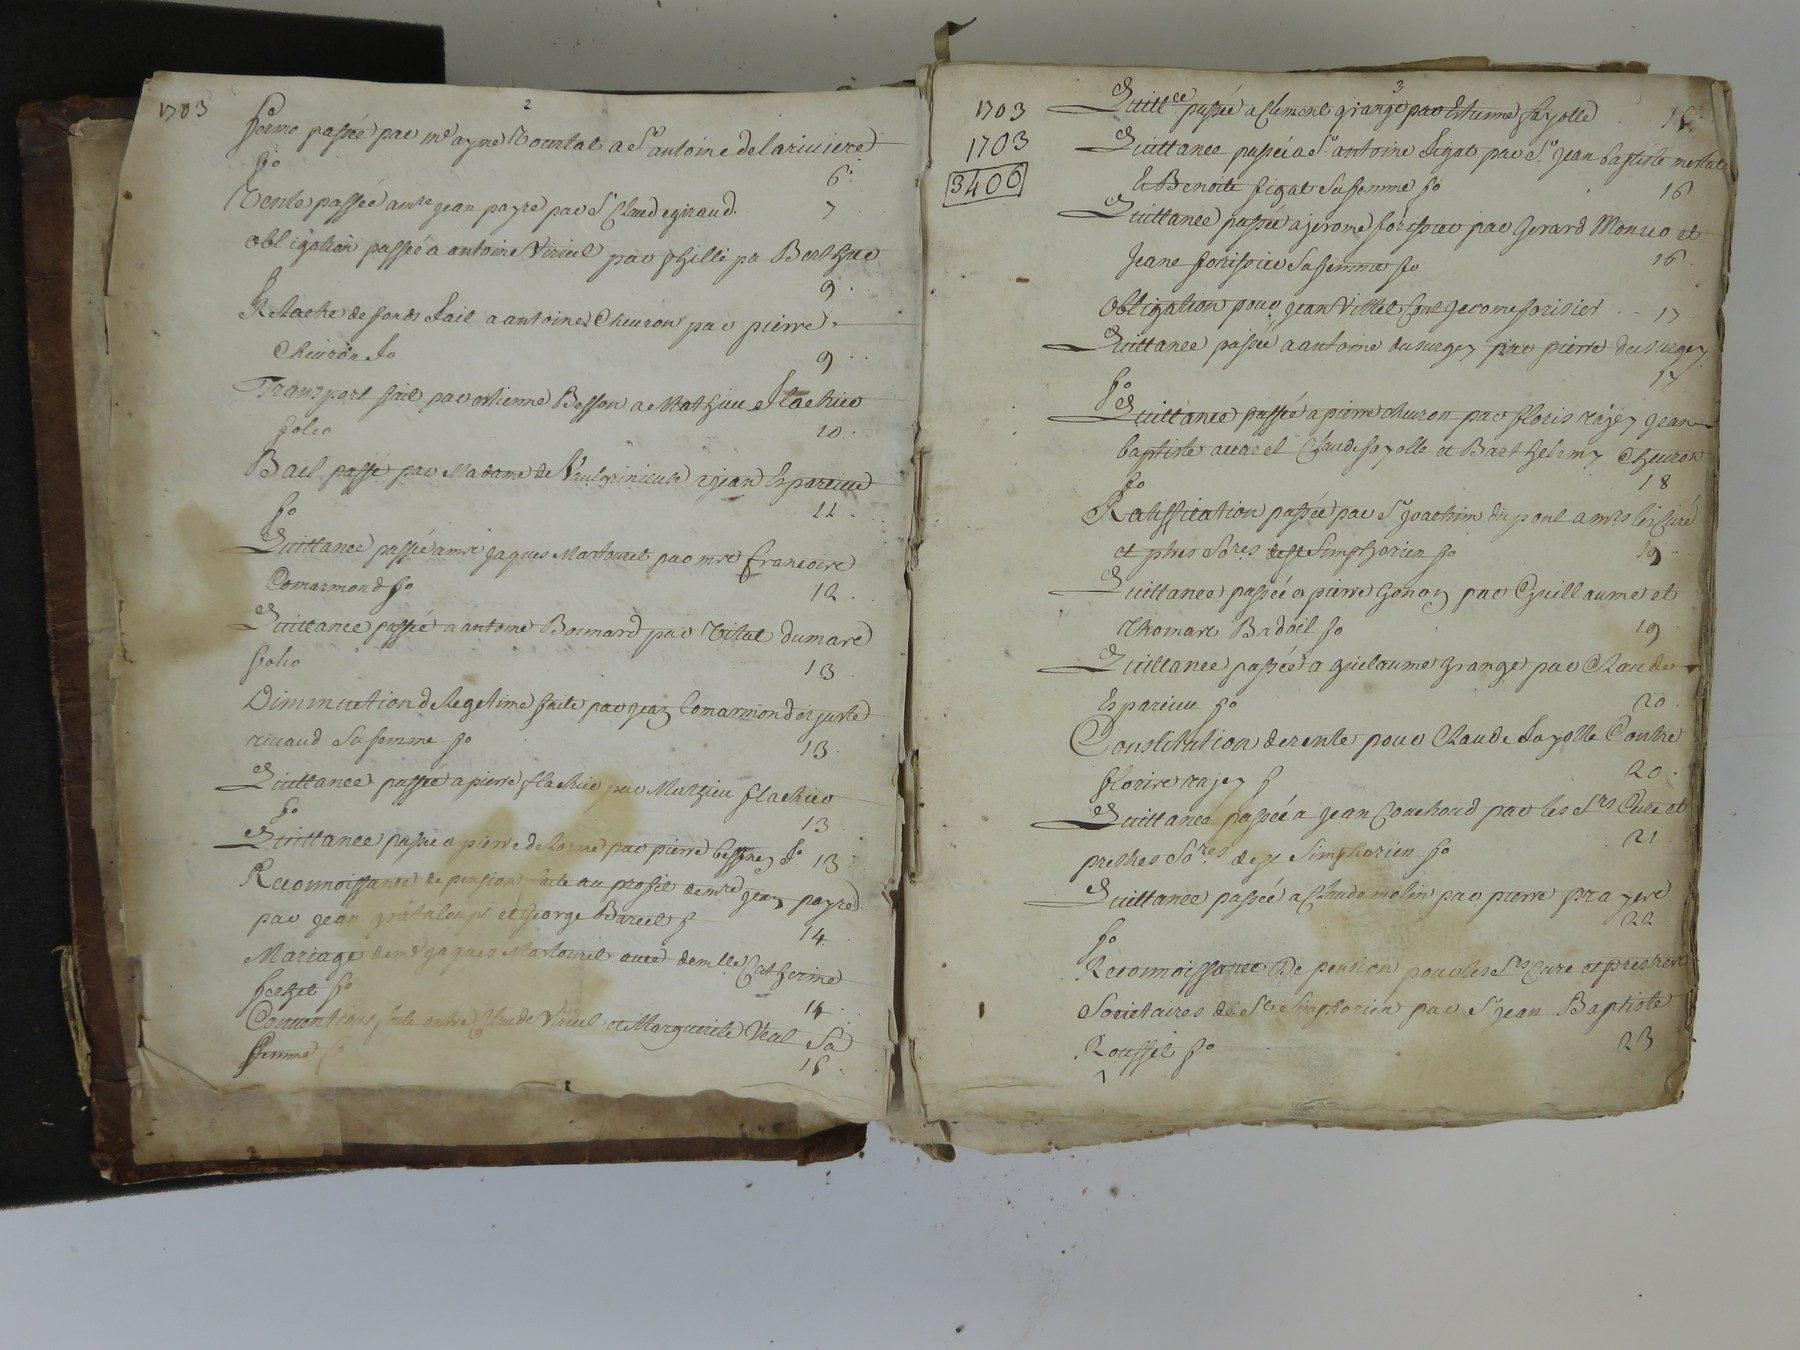 1703
2
ferme passée par mre ayme Tourtal a Sr antoine delariviere
fo 6
Vente passée amre jean payre par Sr Claude giraud. 7
obligation passée a antoine Viricel par phillipa Berthier
9
Relache de fonds fait a antoine Cheuron par pierre
Cheuron fo 9
Transport fait par estienne Besson a Mathieu flachier
folio 10
Bail passé par Madame de a jean Esparcieu
fo 11
Quittance passée amre jaques Martourel par mre francoire
Comarmond fo 12
Quittance passée a antoine Bonnard par Vital dumare
folio 13
Diminution de legitime faite par jean Comarmond et juste
rivaud Safemme fo 13
Quittance passée a pierre flachier par Mathieu flachier
fo 13
Quittance passée a pierre delorme par pierre bessenay fo 13
Reconnoissance de pension faite au profit demre jean payre
par jean grataloup et George Barcel f 14
Mariage demre jaques Martourel avec demlle Catherine
fo 14
Conventions faite entre Claude Viricel et Marguerite Veal Sa
femme 15
1703
3
Quittce passée a Clement grange par Estienne fayolle 15
1703
Quittance passée a Sr antoine figat par Sr Jean baptiste
3406
Et Benoite figat Safemme fo 16
Quittance passée a jerome forissier par Gerard Monuo et
Jeane forissier Safemme fo 16
Obligation pour jean Villet Cont jerome forisier 17
Quittance passée a antoine dusurgey par pierre dusurgey
fo 17
Quittance passée a pierre cheuron par floris rajey jean
baptiste avarel Claude fayolle et Barthelemy Cheuron
fo 18
Ratiffication passée par Sr joachim dupont a mrs les curé
et pbres Sores de st Simphorien fo 19
Quittance passée a pierre Gonon par Guillaume et
Thomare Badoil fo 19
Quittance passée a guilaume grange par Claude
Esparcieu fo 20
Constitution derente pour Claude fayolle Contre
florire rajey f 20
Quittance passée a jean Couchoud par les Srs Cure et
prestres Sores de st Simphorien fo 21
Quittance passée a Claude molin par pierre prayere
fo 22
Reconnoissance De pension pour les Srs Cure et prestres
Societaires de St Simphorien par Sr jean Baptiste
Roussel fo 23